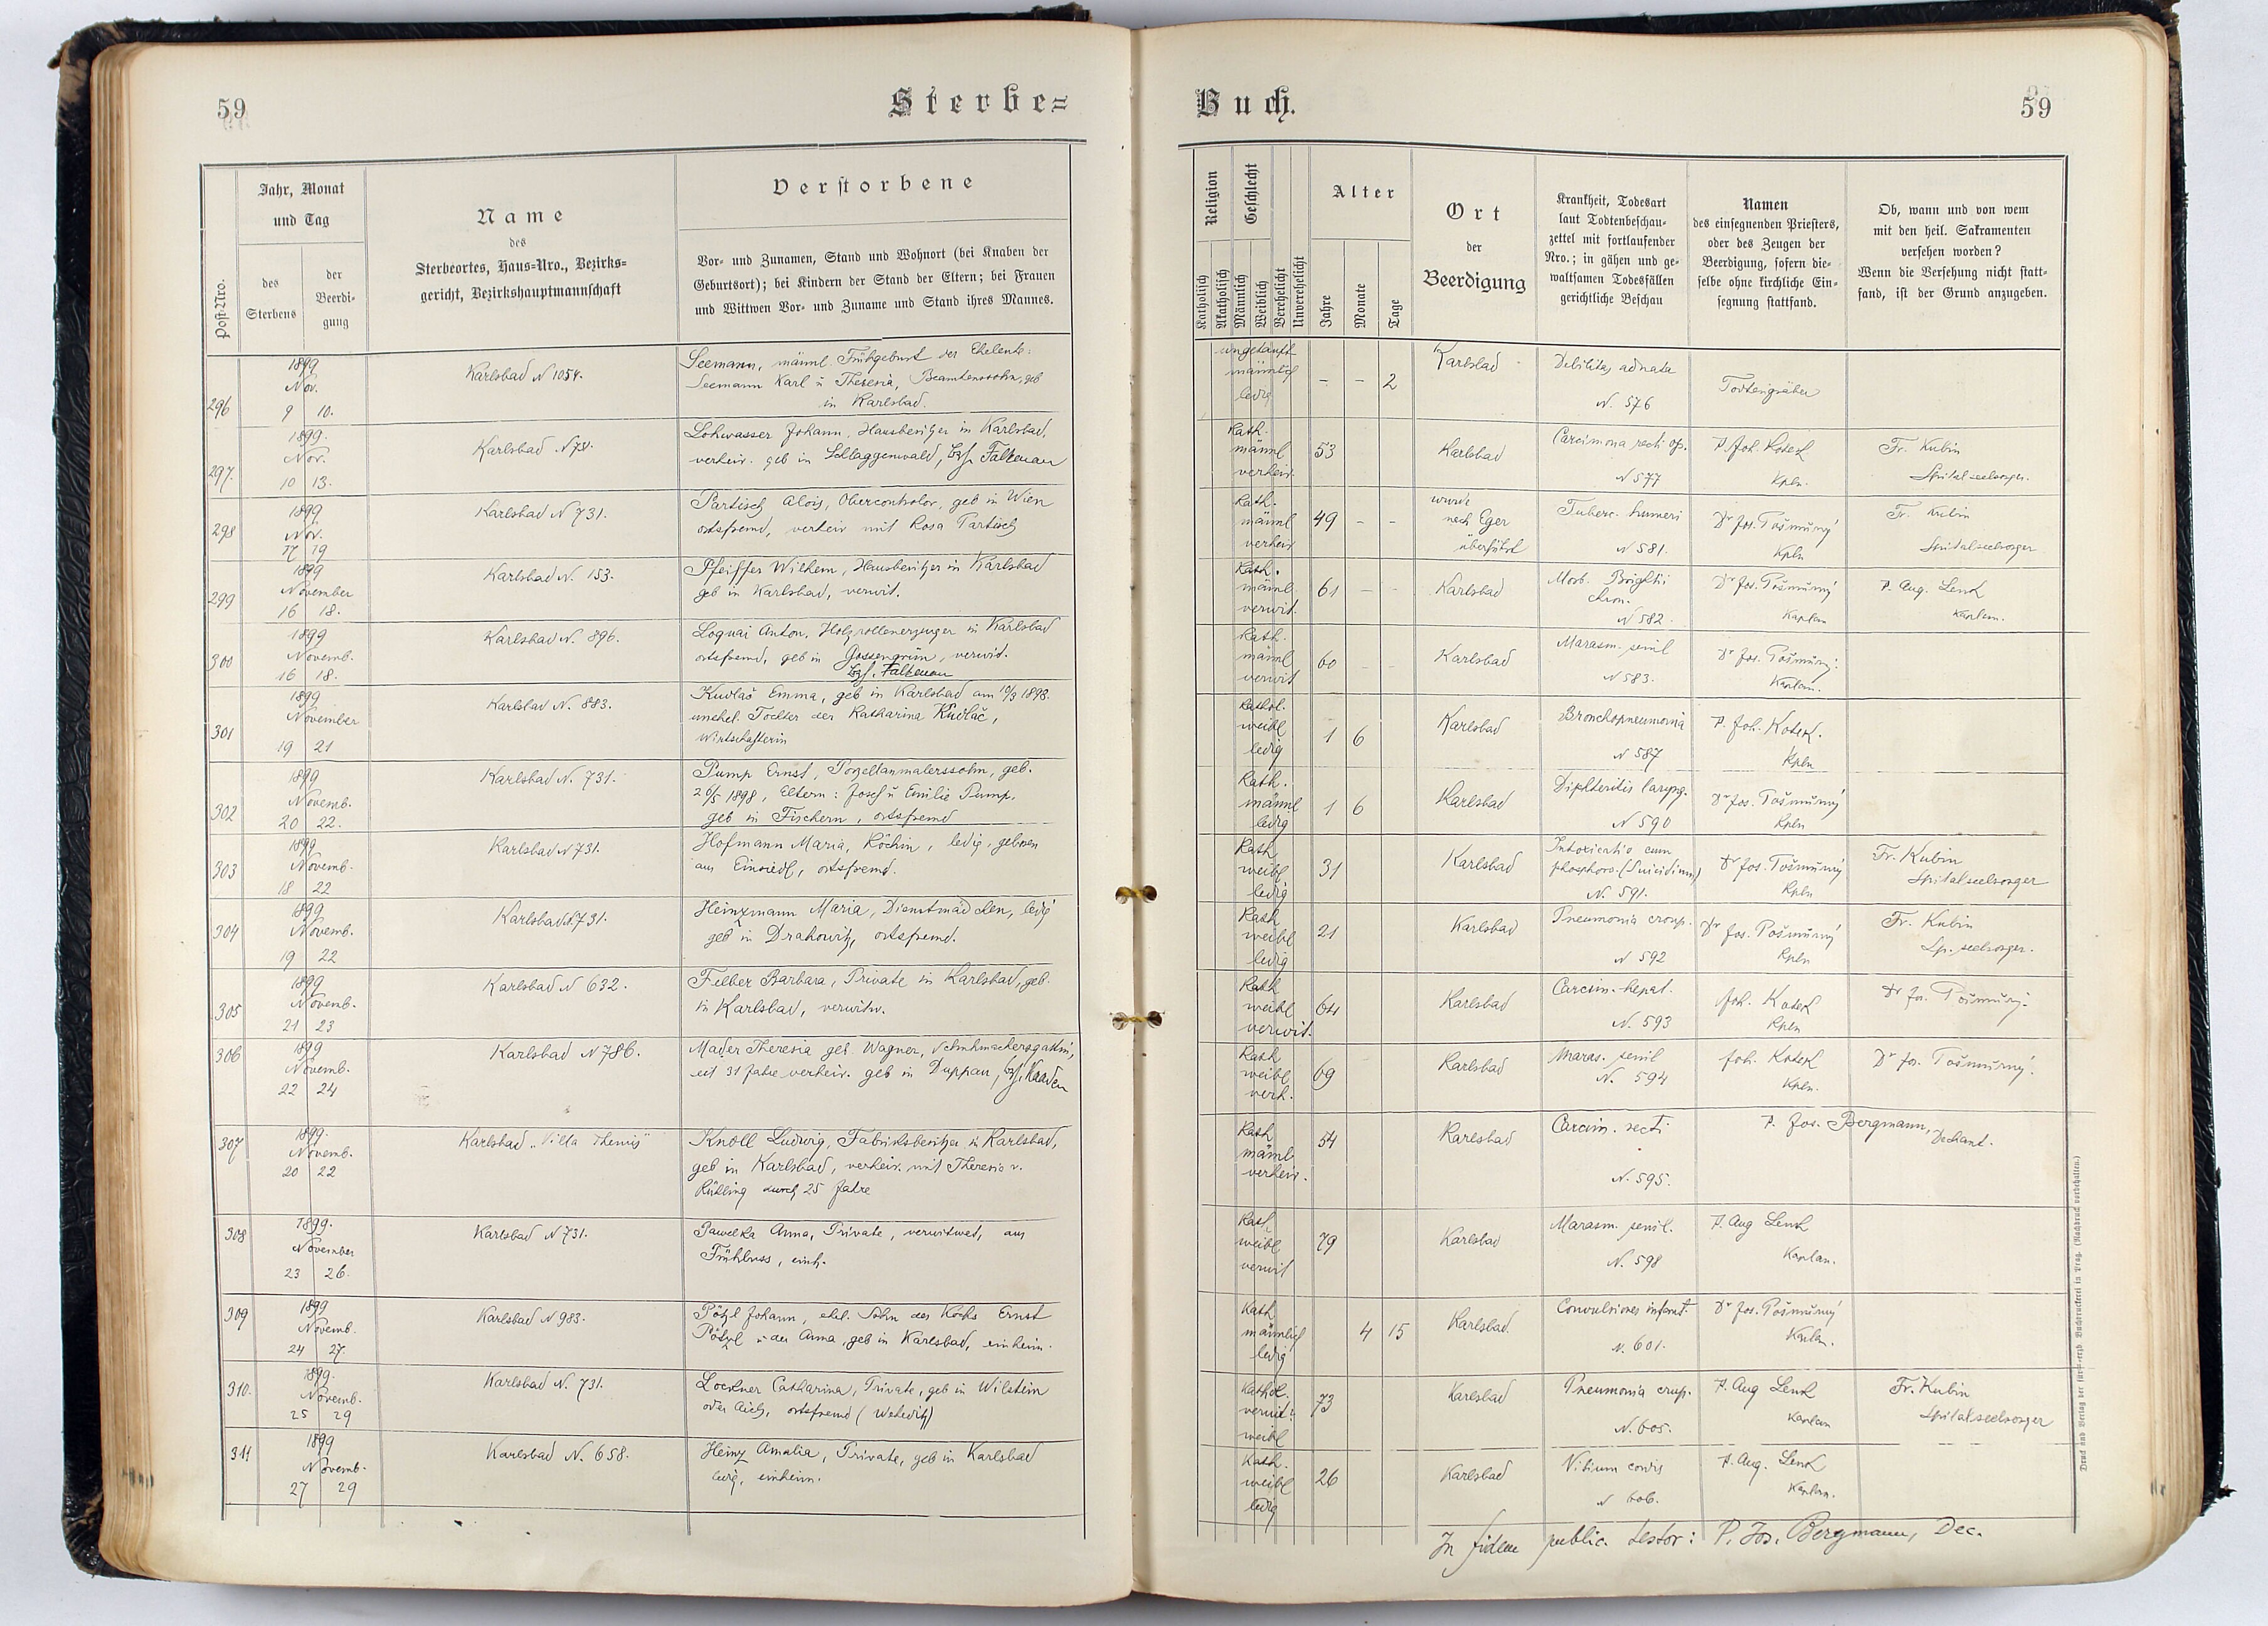 59
Sterbe=
Jahr, Monat
und Tag
Verstorbene
Name
des
Sterbeortes, Haus=Nro., Bezirks=
gericht, Bezirkshauptmannschaft
Post=Nro.
des
Sterbens
der
Beerdi=
gung
Vor= und Zunamen, Stand und Wohnort (bei Knaben der
Geburtsort); bei Kindern der Stand der Eltern; bei Frauen
und Wittwen Vor= und Zuname und Stand ihres Mannes.
296
1899
Nov.
9 10.
Karlsbad N 1054.
Seemann, männl. Frühgeburt der Eheleute:
Seemann Karl u Theresia, Beamtenssohn, geb
in Karlsbad.
297.
1899.
Nov.
10 13.
Karlsbad N
Lohwasser Johann, Hausbesitzer in Karlsbad,
verheir. geb in Schlaggenwald, Bzh. Falkenau
298
1899
Nov.
17 19
Karlsbad N 731.
Partisch Alois, Obercontrolor, geb in Wien
ortsfremd, verheir mit Rosa Partisch
299
1899
November
16 18.
Karlsbad N. 153.
Pfeiffer Wilhem, Hausbesitzer in Karlsbad
geb in Karlsbad, verwit.
300
1899
Novemb.
16 18.
Karlsbad N. 896.
Loquai Anton, Holzrollenerzeuger in Karlsbad
ortsfremd, geb in Gossengrün, verwit.
Bzh. Falkenau
301
1899
November
19 21
Karlsbad N. 883.
Kudlač Emma, geb in Karlsbad am 10/3 1898.
unehel. Tochter der Katharina Kudlač,
Wirtschafterin
302
1899
Novemb.
20 22.
Karlsbad N. 731.
Pump Ernst, Pozellanmalerssohn, geb.
26/5 1898, Eltern: Josef u Emilie Pump,
geb in Fischern, ortsfremd
303
1899
Novemb.
18 22
Karlsbad N 731.
Hofmann Maria, Köchin, ledig, geboren
aus Einsiedl, ortsfremd.
304
1899
Novemb.
19 22
Karlsbad N. 731.
Heinzmann Maria, Dienstmädchen, ledig
geb in Drahowitz, ortsfremd.
305
1899
Novemb.
21 23
Karlsbad N 632.
Felber Barbara, Private in Karlsbad, geb.
in Karlsbad, verwitw.
306
1899
Novemb.
22 24
Karlsbad N 786.
Mader Theresia geb. Wagner, Schuhmachersgattin,
seit 31 Jahre verheir. geb in Duppau, Bzh. Kaaden
307
1899.
Novemb.
20 22
Karlsbad „Villa Themis"
Knoll Ludwig, Fabriksbesitzer in Karlsbad,
geb in Karlsbad, verheir. mit Theresia v.
Rühling durch 25 Jahre
308
1899.
November
23 26.
Karlsbad N 731.
Pawelka Anna, Private, verwitwet, aus
Frühbuss, einh.
309
1899
Novemb.
24 27.
Karlsbad N 983.
Pötzl Johann, ehel. Sohn des Kochs Ernst
Pötzl u der Anna, geb in Karlsbad, einheim.
310.
1899.
Novemb.
25 29
Karlsbad N. 731.
Lockner Catharina, Private, geb in Wilstein
oder Aich, ortsfremd (Wehediz)
311
1899
Novemb.
27 29
Karlsbad N. 658.
Heinz Amalia, Private, geb in Karlsbad
ledig, einheim.
Buch.
59
Religion
Geschlecht
Katholisch
Akatholisch
Männlich
Weiblich
Verehelicht
Unverehelicht
Alter
Jahre
Monate
Tage
Ort
der
Beerdigung
Krankheit, Todesart
laut Todtenbeschau=
zettel mit fortlaufender
Nro.; in gähen und ge=
waltsamen Todesfällen
gerichtliche Beschau
Namen
des einsegnenden Priesters,
oder des Zeugen der
Beerdigung, sofern die=
selbe ohne kirchliche Ein=
segnung stattfand.
Ob, wann und von wem
mit den heil. Sakramenten
versehen worden?
Wenn die Versehung nicht statt=
fand, ist der Grund anzugeben.
ungetauft
männlich
ledig
- - 2
Karlsbad
Debilitas adnata
N. 576
Todtengräber
Kath.
männl
verheir.
53
Karlsbad
Carcimona recti op.
N 577
P. Joh. Koterl
Kpln.
Fr. Kubin
Spitalseelsorger.
Kath.
männl
verheir
49 - -
wurde
nach Eger
überführt
Tuberc. humeri
N 581.
Dr Jos. Pošmůrný
Kpln
Fr. Kubin
Spitalseelsorger
Kath.
männl.
verwit.
61 - -
Karlsbad
Morb. Brightii
chron.
N 582.
Dr Jos. Pošmůrný
Kaplan
P. Aug. Lenk
Kaplan.
Kath.
männl
verwit
60 - -
Karlsbad
Marasm. senil
N 583.
Dr Jos. Pošmůrný.
Kaplan.
Kathol.
weibl
ledig
1 6
Karlsbad
Bronchopneumonia
N 587
P. Joh. Koterl.
Kpln
Kath.
männl
ledig
1 6
Karlsbad
Diphteritis laryng.
N 590
Dr Jos. Pošmůrný
Kpln
Kath
weibl
ledig
31
Karlsbad
Intoxicatio cum
phosphoro. (Suicidium)
N. 591.
Dr Jos. Pošmůrný
Kpln
Fr. Kubin
Spitalseelsorger
Kath
weibl
ledig
21
Karlsbad
Pneumonia croup.
N 592
Dr Jos. Pošmůrný
Kpln
Fr. Kubin
Sp. seelsorger.
Kath
weibl
verwit.
64
Karlsbad
Carcin. hepat.
N. 593
Joh. Koterl
Kpln
Dr Jos. Pošmůrný.
Kath
weibl
verh.
69
Karlsbad
Maras. senil
N. 594
Joh. Koterl
Kpln.
Dr Jos. Pošmůrný.
Kath
männl
verheir.
54
Karlsbad
Carcin. recti
N. 595.
P. Jos. Bergmann, Dechant.
Kath
weibl
verwit
79
Karlsbad
Marasm. senil.
N. 598
P. Aug Lenk
Kaplan.
Kath
männlich
ledig
4 15
Karlsbad.
Convulsiones infant.
N. 601.
Dr Jos. Pošmůrný
Kpln.
Kathol.
verwit.
weibl
73
Karlsbad
Pneumonia crup.
N. 605.
P. Aug Lenk
Kaplan
Fr. Kubin
Spitalseelsorger
Kath.
weibl
ledig
26
Karlsbad
Vitium cordis
N 606.
P. Aug. Lenk
Kaplan.
In fidem public. testor: P. Jos. Bergmann, Dec.
Druck und Verlag der fürst=erzb. Buchdruckerei in Prag. (Nachdruck vorbehalten.)